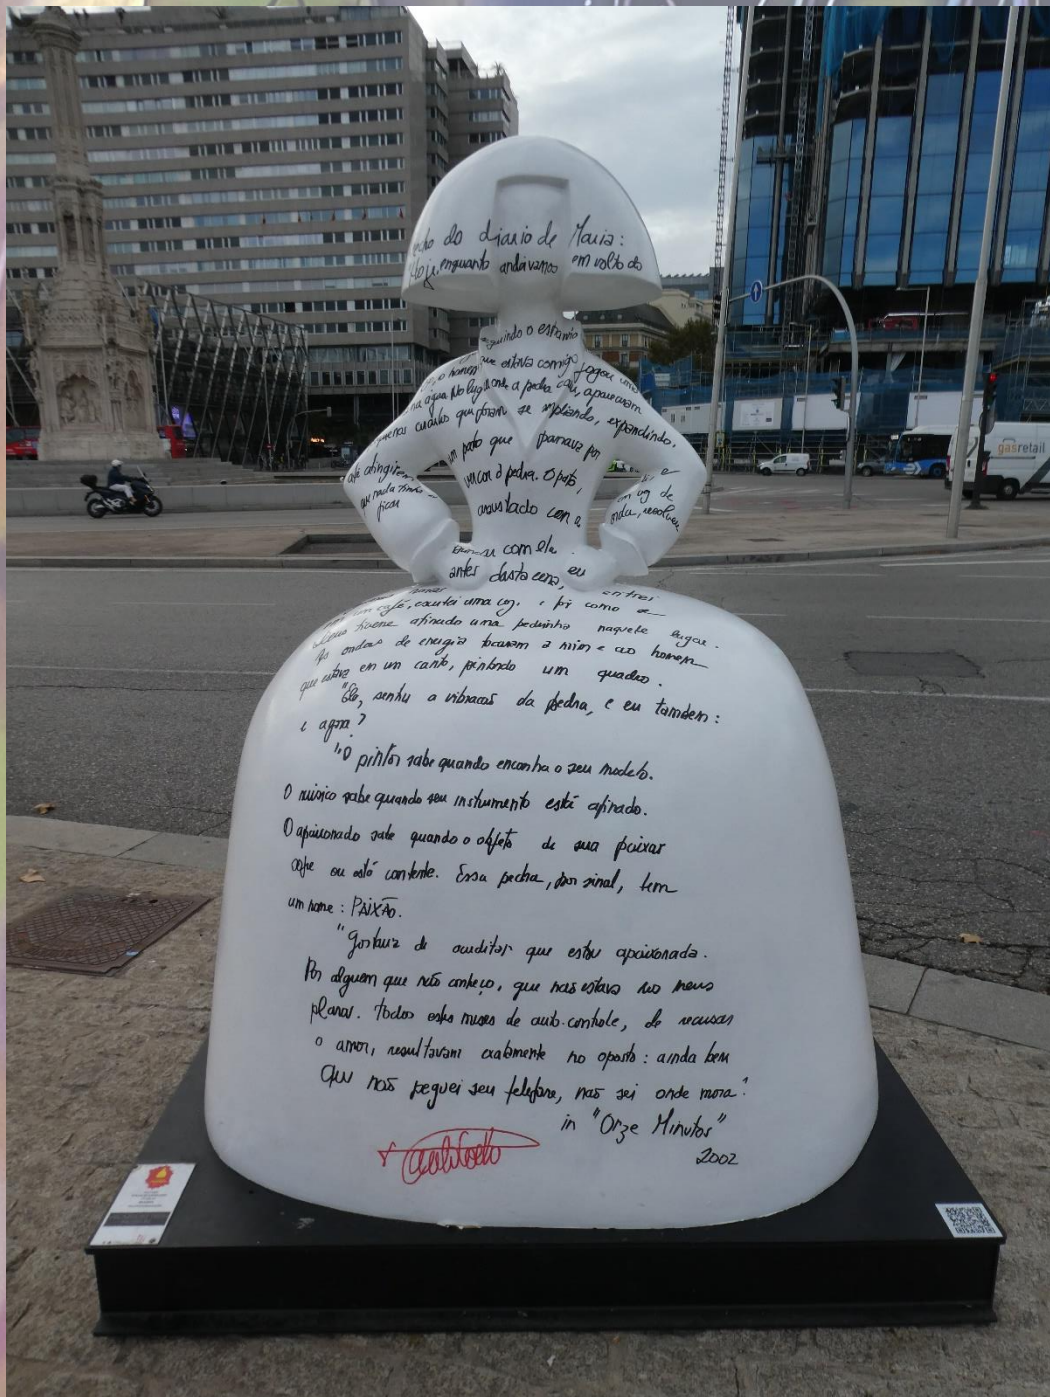 do diario de Maria:
enquanto andavamos em volta do
o estavio
o homem que estava comigo jogou uma
na água. No lugar onde a pedra caiu, apareceram
circulos que foram se ampliando, expandindo,
até atingirem um pato que passava por
que nada tinha a ver com a pedra. O pato,
ficar assustado com a onda, resolveu
com ela.
antes desta cena, eu entrei
um café, escutei uma voz, e foi como se
Deus tivesse atirado uma pedrinha naquele lugar.
As ondas de energia tocaram a mim e ao homem
que estava em um canto, pintando um quadro.
a vibracas da pedra, e eu tambem:
e agora?
"O pintor sabe quando encontra o seu modelo.
O músico sabe quando seu instrumento está afinado.
O apaixonado sabe quando o objeto de sua paixar
ou está contente. Essa pedra, por sinal, tem
um nome: PAIXÃO.
"Gostaria de acreditar que estou apaixonada.
Por alguem que não conheço, que nas estava no meus
planos. Todos estes meses de auto-controle, de recusar
o amor, resultavam exatamente no oposto: ainda bem
que nas peguei seu telefone, nas sei onde mora."
in "Onze Minutos"
2002
gasretail